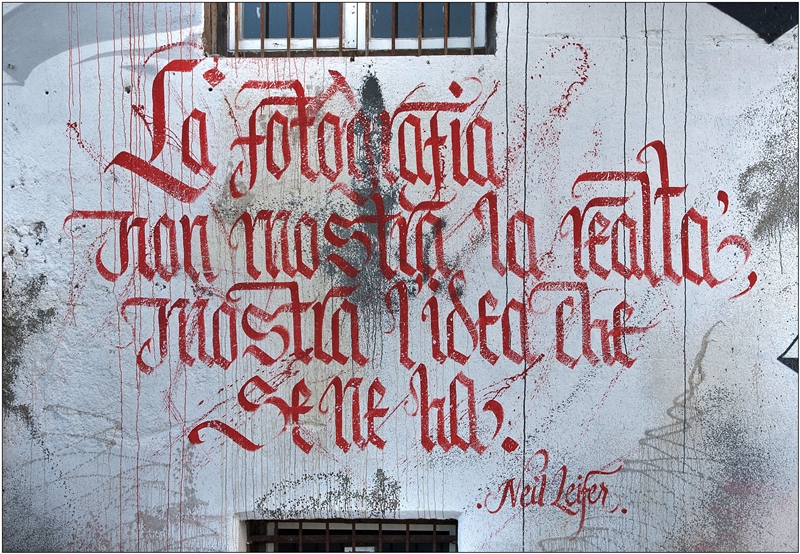 La fotografia
non mostra la realta',
mostra l'idea che
se ne ha.
. Neil Leifer .